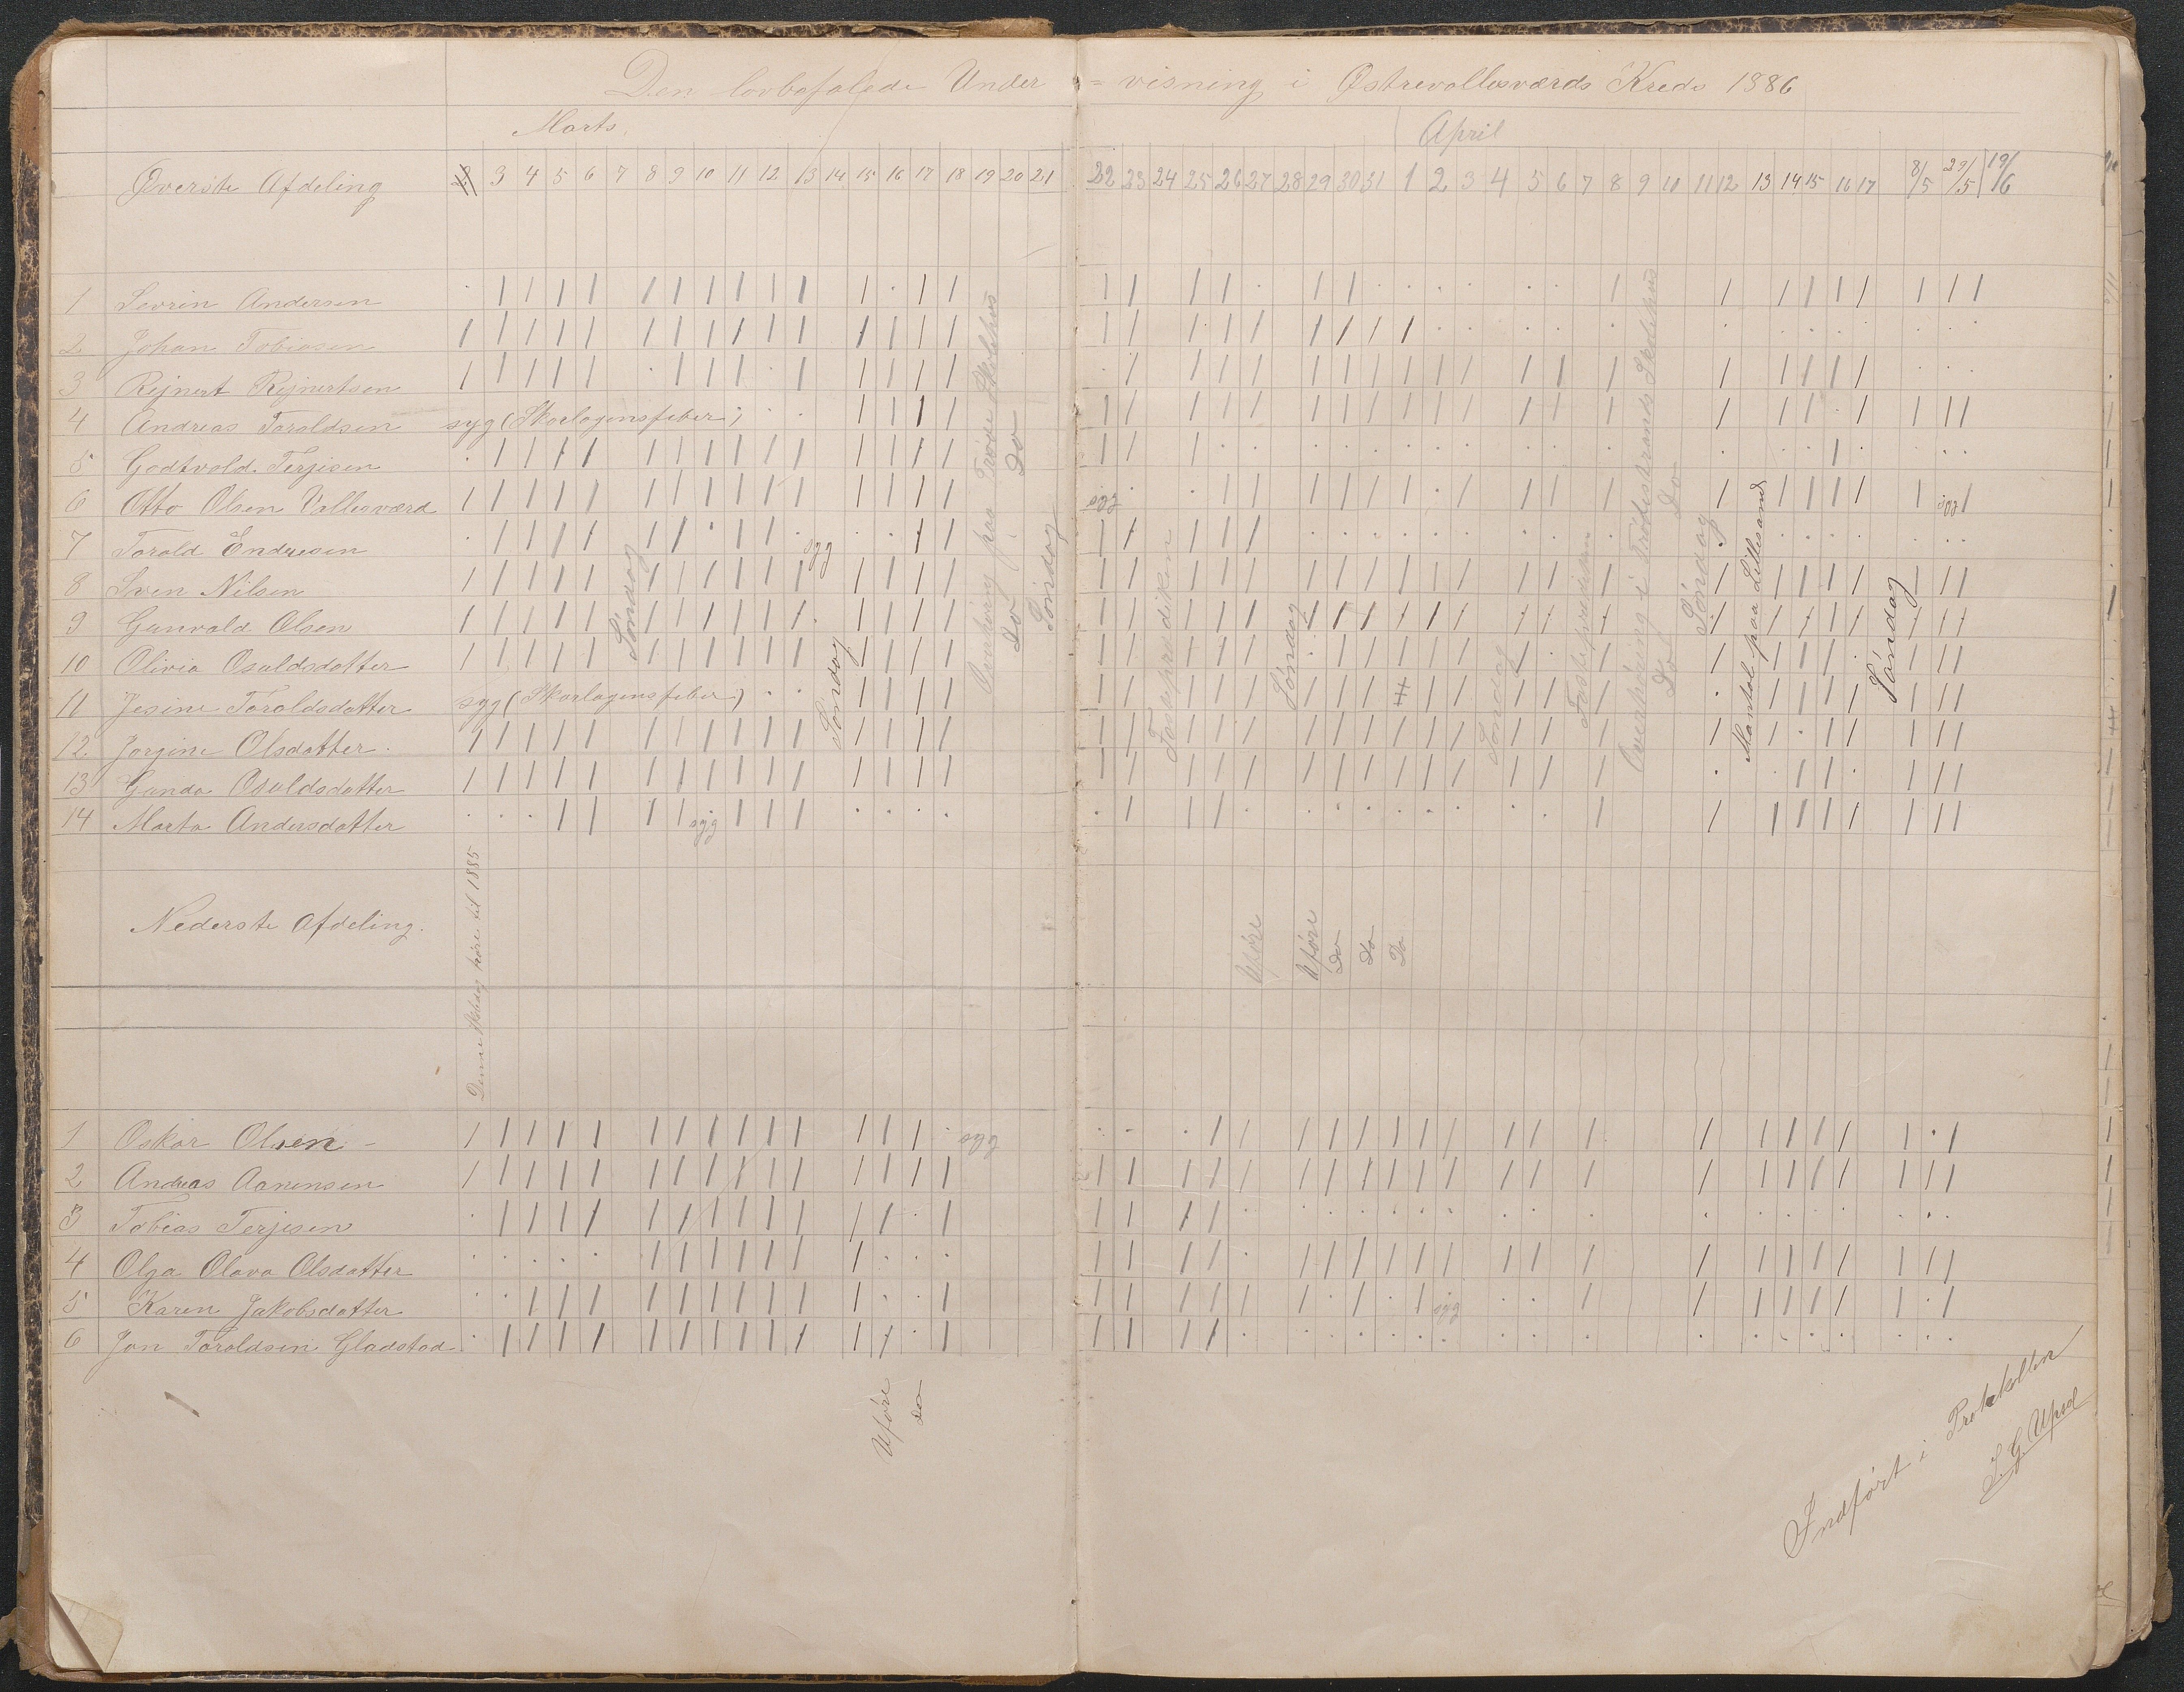 Den lovbefalede Under = visning i Østrevallesværds Kreds 1886
Marts. April
Øverste Afdeling 3 4 5 6 7 8 9 10 11 12 13 14 15 16 17 18 19 20 21 22 23 24 25 26 27 28 29 30 31 1 2 3 4 5 6 7 8 9 10 11 12 13 14 15 16 17 8/5 29/5 19/6
1 Sevrin Andersen
2 Johan Tobiasen
3 Rejnert Rejnertsen
4 Andreas Taraldsen syg (Skarlagensfeber)
5 Godtvald Terjesen
6 Otto Olsen Vallesværd syg syg
7 Torald Endresen syg
8 Sven Nilsen
9 Gunvald Olsen
10 Olivia Osuldsdatter
11 Jesine Taraldsdatter syg (Skarlagensfeber)
12 Jorgine Olsdatter.
13 Gunda Osuldsdatter
14 Marta Andersdatter syg
Søndag
Søndag
Overhøring paa Trøde Skolehus
Do Do
Søndag
Fasteprædiken
Søndag
Søndag
Fasteprædiken
Overhøring i Trødestrands Skolehus
Do Do
Søndag
Mantal paa Lillesand
Søndag
Nederste Afdeling.
Denne Skoledag hører til 1885
Uføre
Uføre
Do
Do
Do
1 Oskar Olsen syg
2 Andreas Aanensen
3 Tobias Terjesen
4 Olga Olava Olsdatter
5 Karen Jakobsdatter syg
6 Jon Taraldsen Gladstad
Uføre
Do
Indført i Protokollen
S. G. Upsal